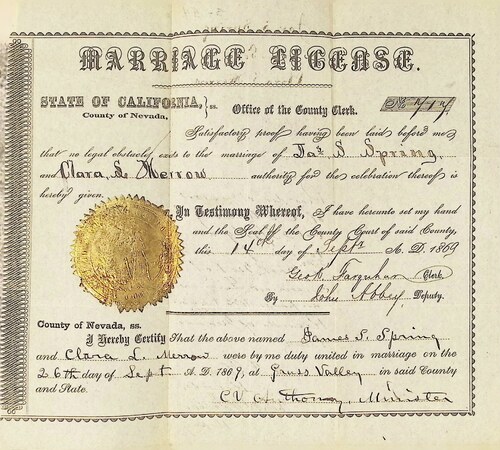 MARRIAGE LICENSE.
STATE OF CALIFORNIA, } ss.
County of Nevada,
Office of the County Clerk.
Satisfactory proof having been laid before me
that no legal obstacle exists to the marriage of Jas S Spring
and Clara L Merrow authority for the celebration thereof is
hereby given.
In Testimony Whereof, I have hereunto set my hand
and the Seal of the County Court of said County,
this 14th day of Sept A. D. 1869
Geo K Farquhar Clerk
By John Abbey, Deputy.
County of Nevada, ss.
I Hereby Certify That the above named James S. Spring
and Clara L. Merrow were by me duly united in marriage on the
26th day of Sept A. D. 1869, at Grass Valley in said County
and State.
C V Anthony, Minister